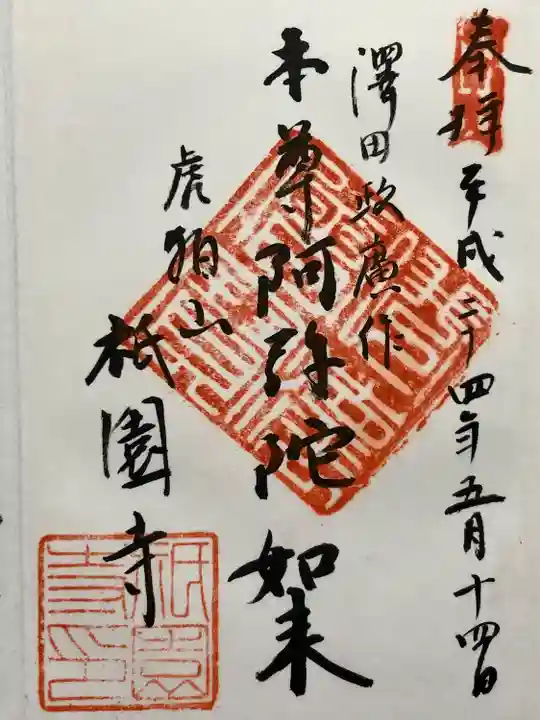 奉拝 平成二十四年五月十四日
澤田政廣作
本尊阿弥陀如来
虎狛山
祇園寺
祇園寺印